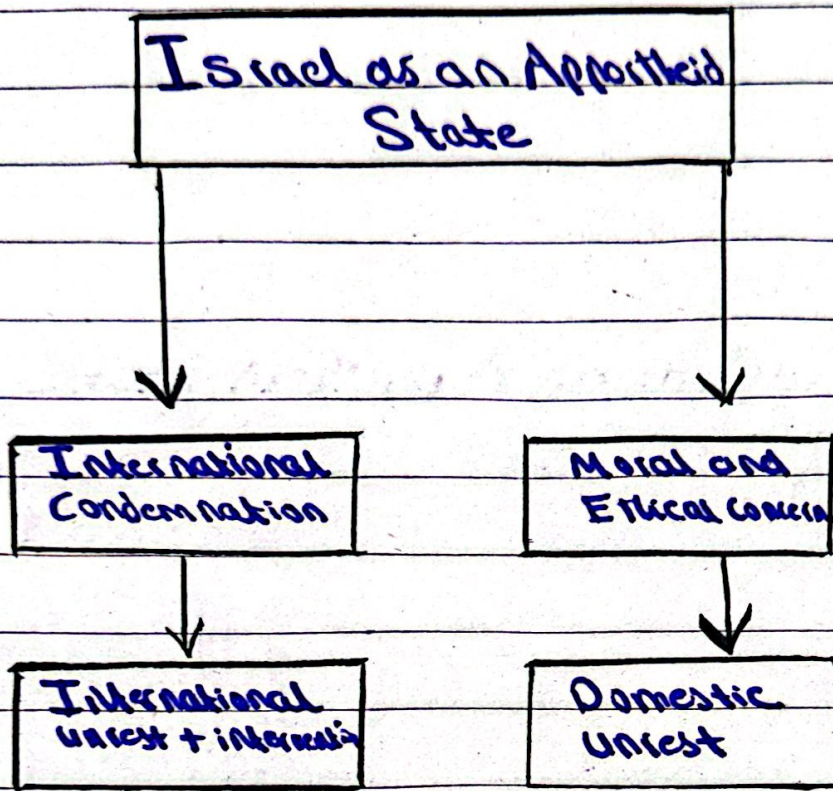 Israel as an Apportheid
State
International
Condemnation
Moral and
Ethical concern
International
unrest +
Domestic
unrest